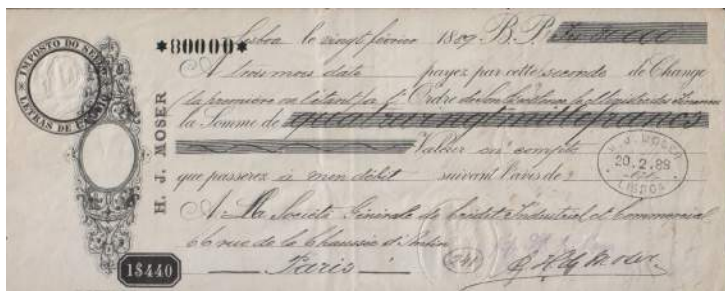 IMPOSTO DO SELLO
LETRAS DE CAMBIO
1$440
H. J. MOSER
*80000*
Lisboa le vingt février 1889 B. P. Frs 80000
A trois mois date payez par cette seconde de Change
(la première ne l'étant) a l'Ordre de
la Somme de quatrevingt mille francs
Valeur en compte
que passerez à mon débit suivant l'avis de
A La Société Générale de Crédit Industriel et Commercial
66 rue de la Chaussée d'Antin
Paris
H. J. MOSER
20.2.89
LISBOA